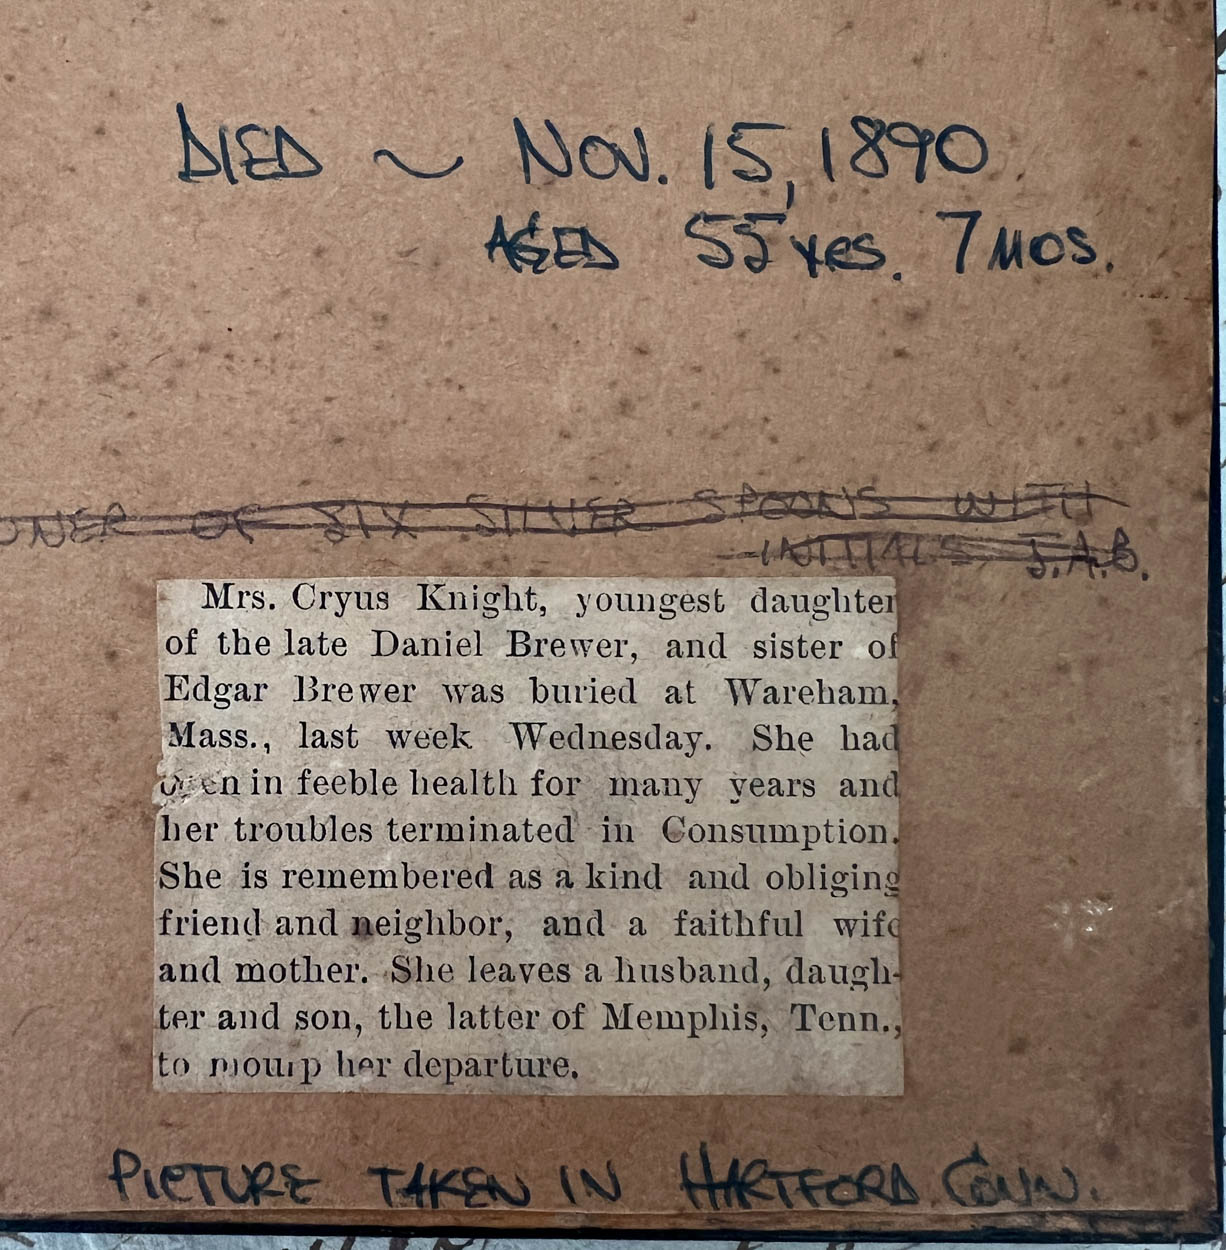 DIED ~ NOV. 15, 1890
AGED 55 yrs. 7 MOS.
OWNER OF SIX SILVER SPOONS WITH
INITIALS J.A.B.
Mrs. Cryus Knight, youngest daughter
of the late Daniel Brewer, and sister of
Edgar Brewer was buried at Wareham,
Mass., last week Wednesday. She had
been in feeble health for many years and
her troubles terminated in Consumption.
She is remembered as a kind and obliging
friend and neighbor, and a faithful wife
and mother. She leaves a husband, daugh-
ter and son, the latter of Memphis, Tenn.,
to mourn her departure.
PICTURE TAKEN IN HARTFORD CONN.